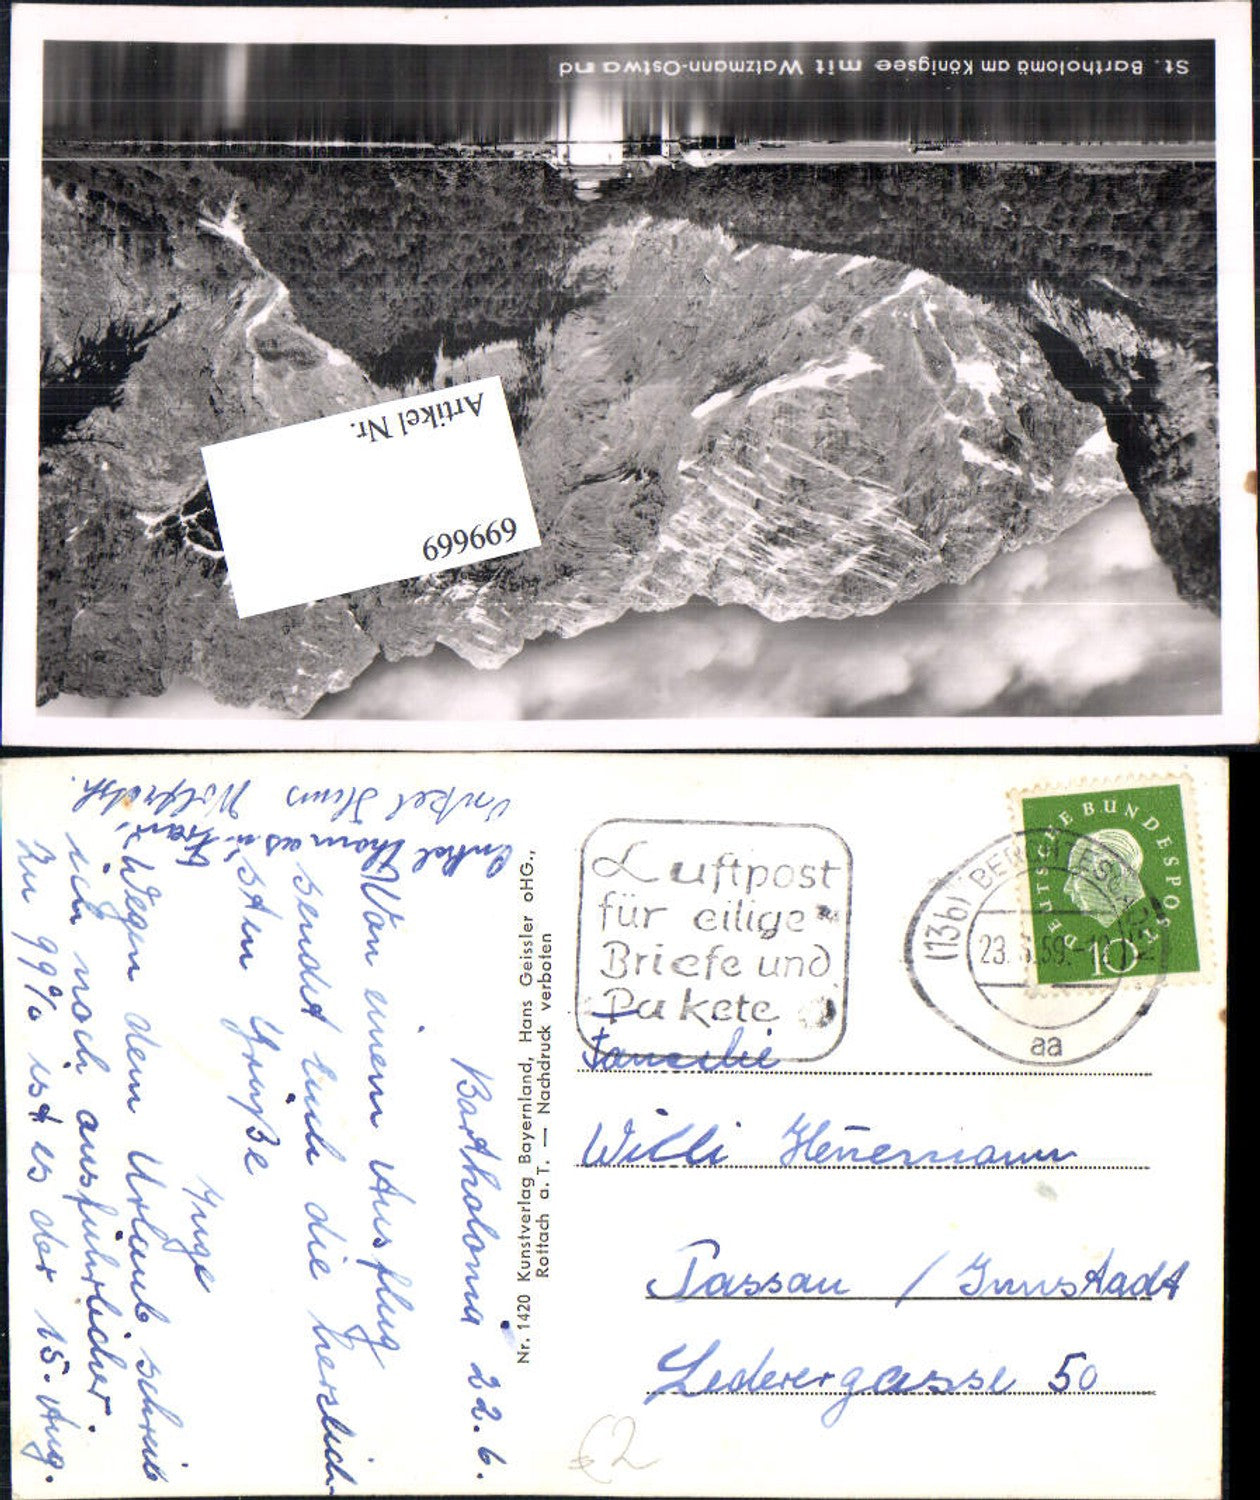 St. Bartholomä am Königsee mit Watzmann-Ostwand
Artikel Nr.
699669
Luftpost
für eilige
Briefe und
Pakete
(13b) BERCHTESGADEN
23. 6.59.-1
aa
DEUTSCHE BUNDESPOST
10
Familie
Willi Heuermann
Passau / Innstadt
Lederergasse 50
Nr. 1420 Kunstverlag Bayernland, Hans Geissler oHG.,
Rottach a. T. — Nachdruck verboten
Bartholomä 22.6.
Von einem Ausflug
sendet Euch die herzlich-
sten Grüße
Inge
Wegen dem Urlaub schreib
ich noch ausführlicher.
Zu 99% ist es der 15. Aug.
Onkel Thomas u. Frau,
Onkel Hans